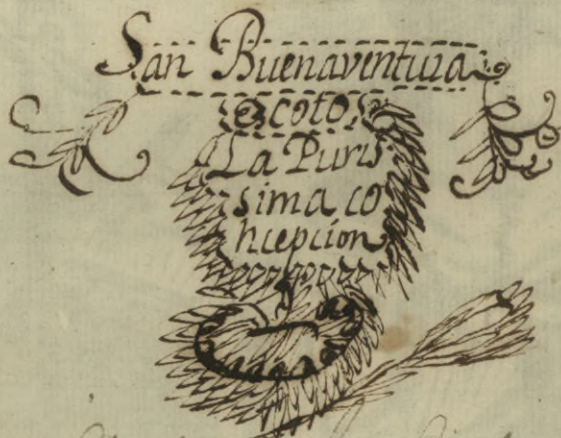 San Buenaventura
Escoto
La Puris
sima co
ncepcion